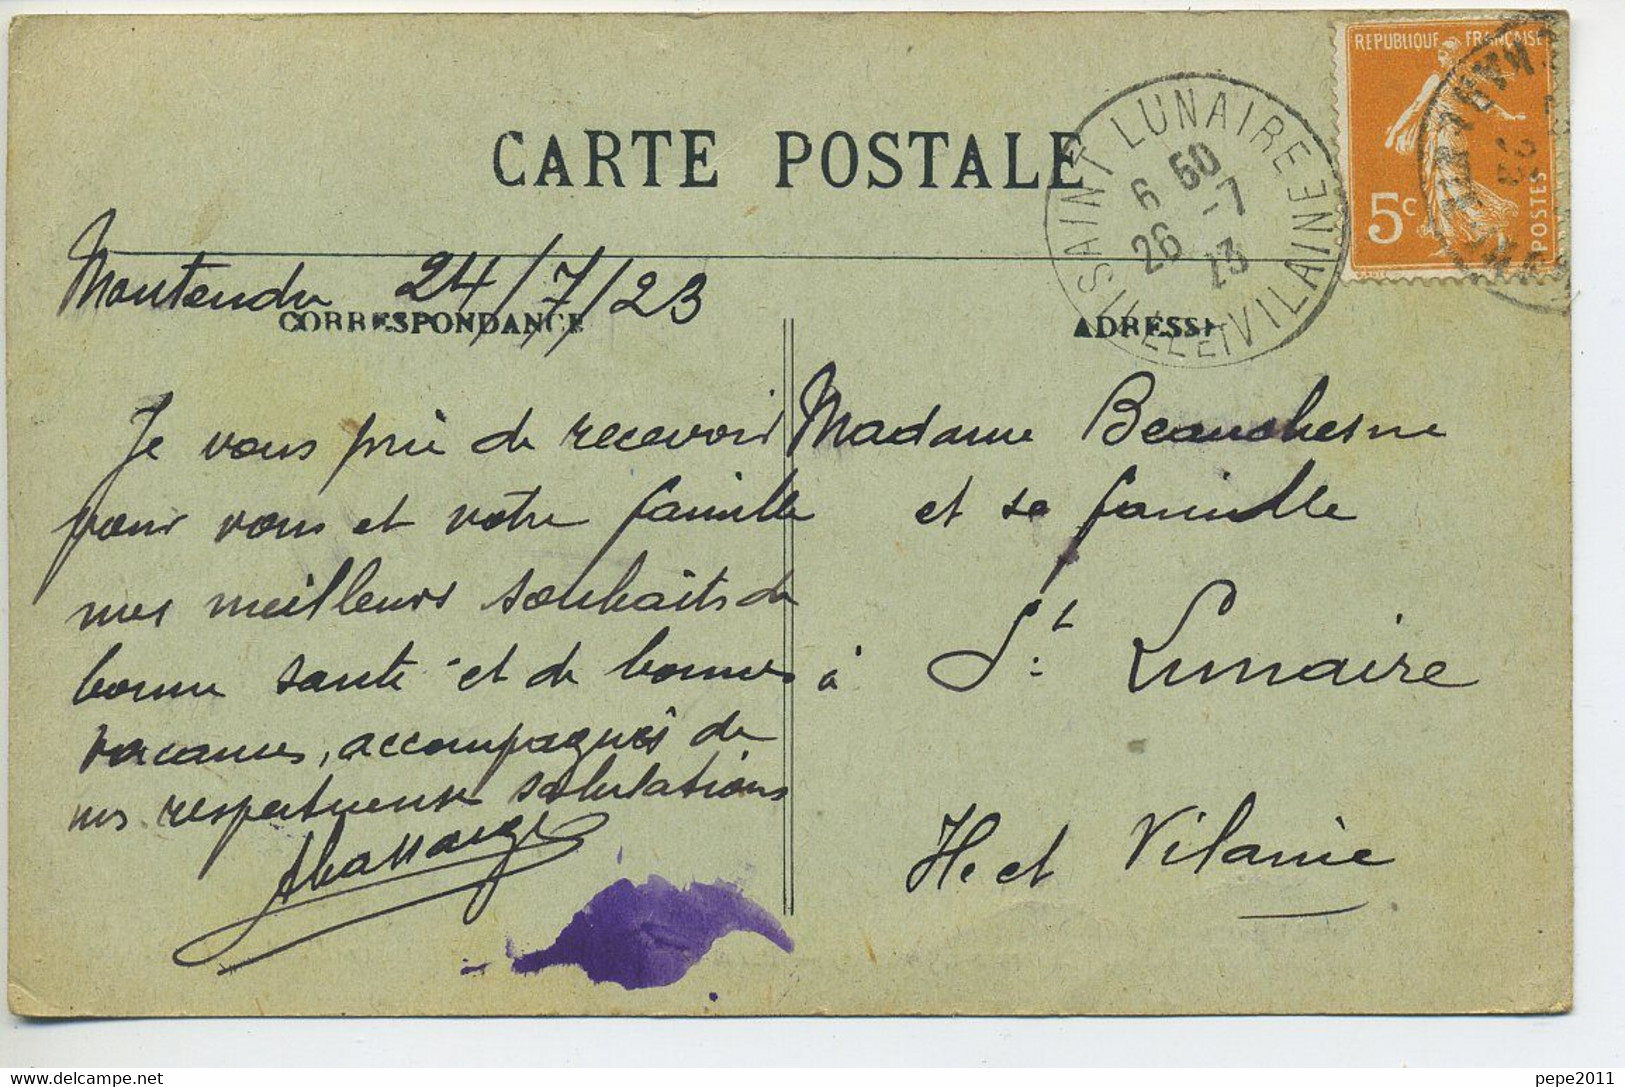 CARTE POSTALE
REPUBLIQUE FRANÇAISE
5c
POSTES
SAINT LUNAIRE
ILLE ET VILAINE
6 50
26 -7
23
Montendre 24/7/23
CORRESPONDANCE
ADRESSE
Je vous prie de recevoir
pour vous et votre famille
mes meilleurs souhaits de
bonne santé et de bonnes
vacances, accompagnés de
nos respectueuses salutations
Madame Beauchesne
et sa famille
à St. Lunaire
Ile et Vilaine
pepe2011
delcampe.net